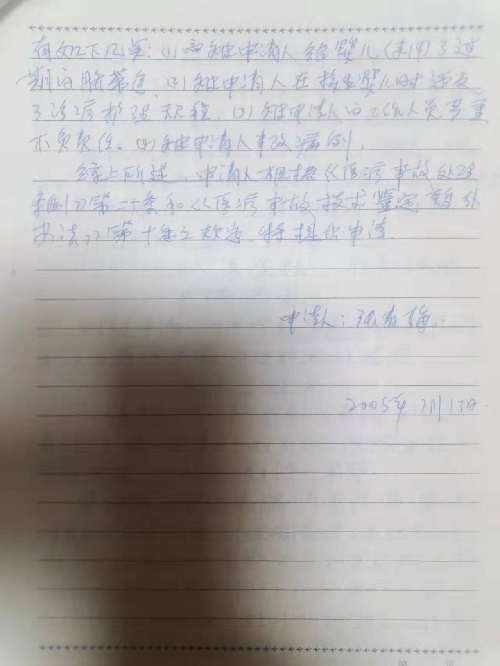 有如下几点：(1)被申请人给婴儿使用了过
期的脐带包，(2)被申请人在接生婴儿时违反
了治疗护理规程，(3)被申请人的工作人员严重
不负责任。(4)被申请人事改病例。
综上所述，申请人根据《医疗事故处理
条例》第二十条和《医疗事故技术鉴定暂行
办法》第十条之规定，特提出申请
申请人：张有
2005年7月13日